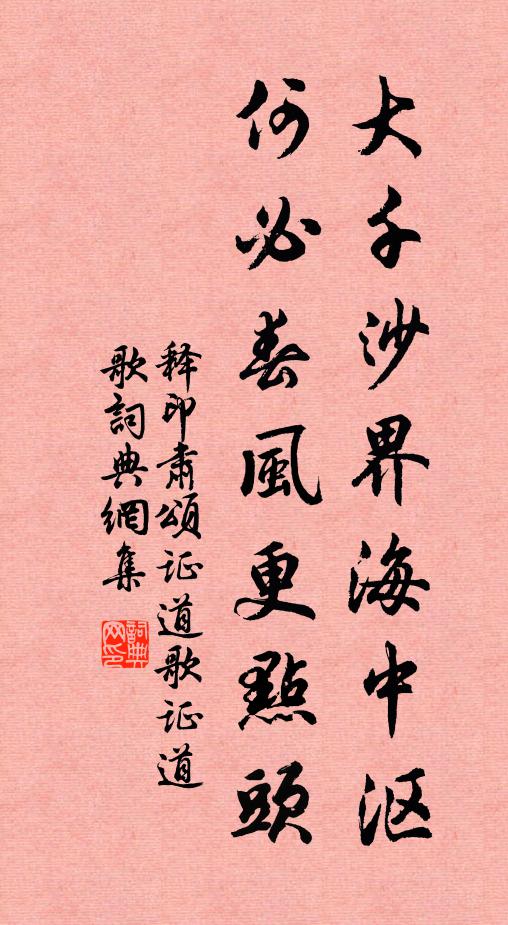 大千沙界海中沤
何必春風更點頭
释印肃頌证道歌证道
歌詞典網集
詞典网印